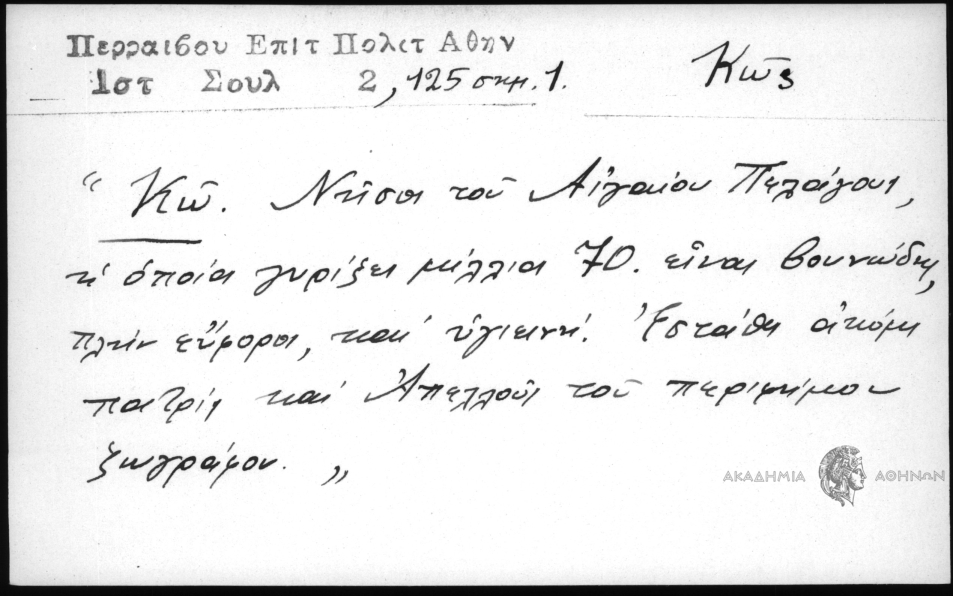 Περραιβου Επιτ Πολετ Αθην
Ιστ Σουλ 2, 125 σημ. 1.
Κῶς
“ Κῶ. Νῆσος τοῦ Αἰγαίου Πελάγους,
ἡ ὁποία γυρίζει μίλλια 70. εἶναι βουνώδης,
πλὴν εὔφορος, καὶ ὑγιεινή. Ἐστάθη ἀκόμη
πατρὶς καὶ Ἀπελλοῦς τοῦ περιφήμου
ζωγράφου. „
ΑΚΑΔΗΜΙΑ ΑΘΗΝΩΝ